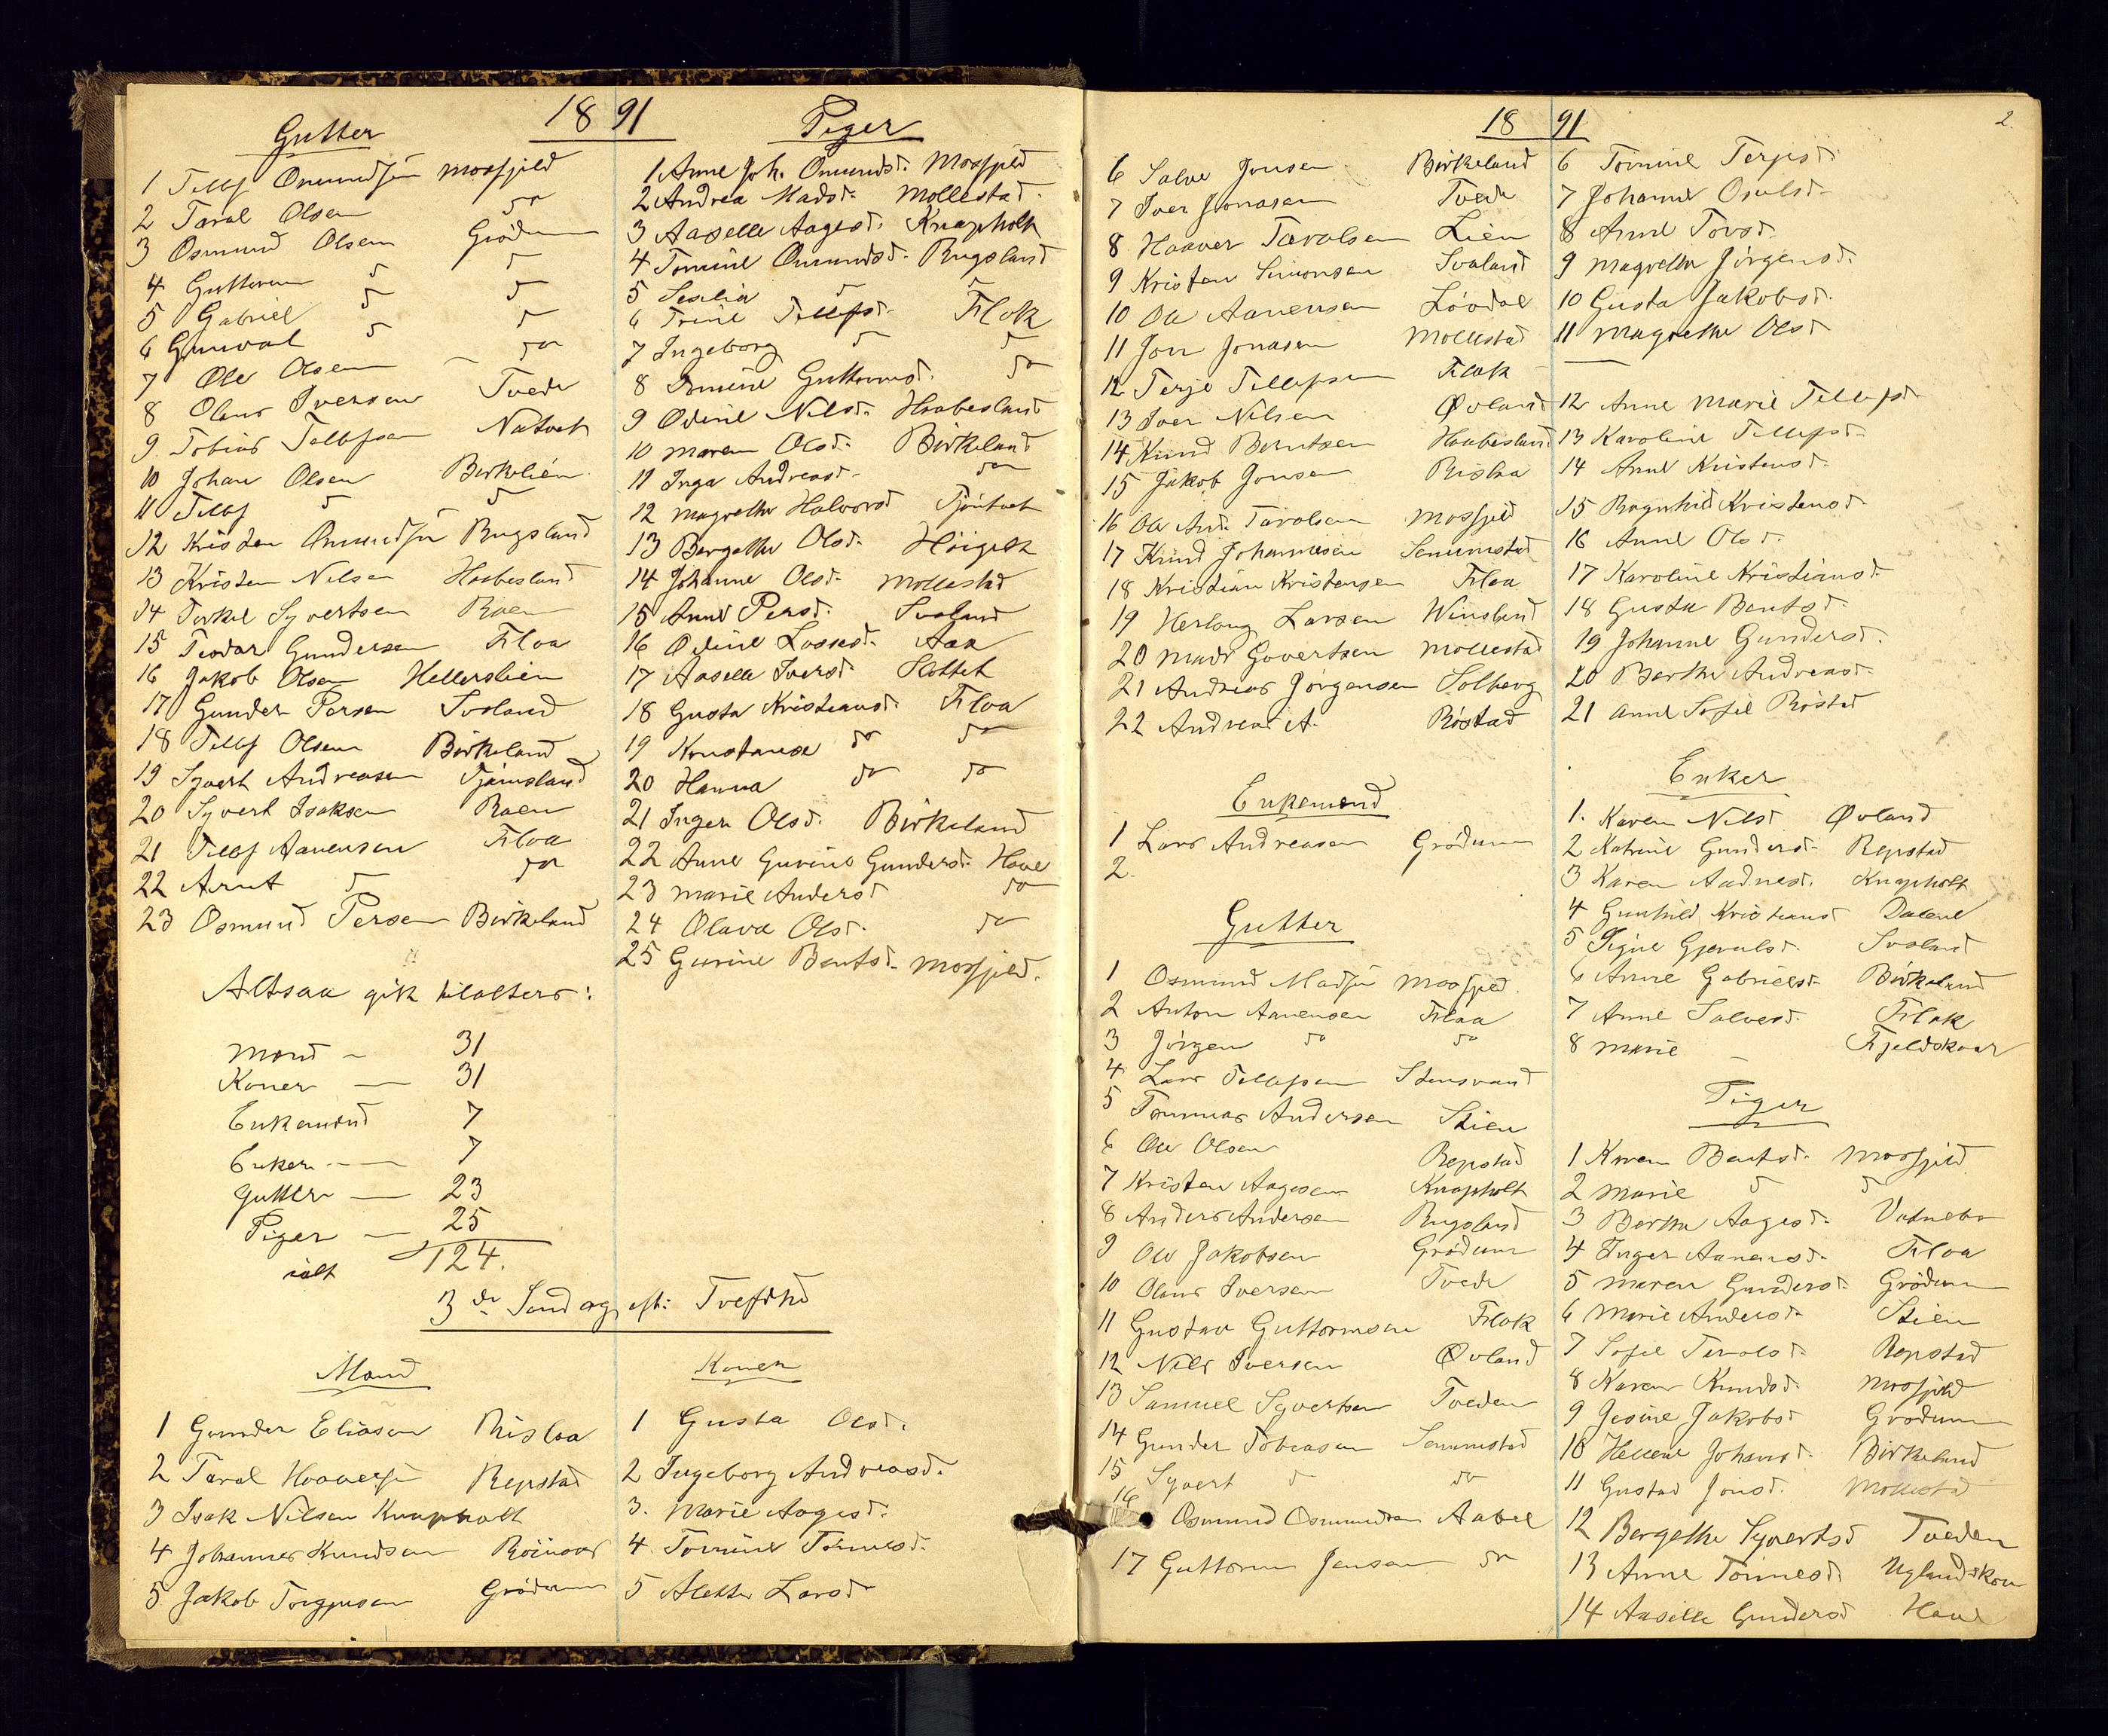 1891
Gutter
1 Tellf Omundsen Mosfjeld
2 Taral Olsen do
3 Osmund Olsen Grødum
4 Guttorm do do
5 Gabriel do do
6 Gunval do do
7 Ole Olsen do
8 Olaus Iversen Tvede
9 Tobias Tellefsen
10 Johan Olsen Birkelien
11 Tellf do do
12 Kristen Omundsen Rugsland
13 Kristen Nilsen Haabesland
14 Terkel Syvertsen Roen
15 Teodor Gundersen Floa
16 Jakob Olsen Hellerslien
17 Gunder Persen Svaland
18 Tellf Olsen Birkeland
19 Syvert Andreasen Tjømsland
20 Syvert Isaksen Roen
21 Tellf Aanensen Floa
22 Arnt do do
23 Osmund Persen Birkeland
Altsaa gik tilalters:
Mænd - 31
Koner - 31
Enkemænd 7
Enker - 7
Gutter - 23
Piger - 25
ialt 124.
Piger
1 Anne Joh. Omundsd. Mosfjeld
2 Andrea Madsd. Mollestad
3 Aaselle Aagesd. Knapholt
4 Tomine Omundsd. Rugsland
5 Sealia do do
6 Trine Tellefsd. Flak
7 Ingeborg do do
8 Tomine Guttormsd. do
9 Odine Nilsd. Haabesland
10 Maren Olsd. Birkeland
11 Inga Andreasd. do
12 Magrethe Halvorsd
13 Bergethe Olsd. Høigilt
14 Johanne Olsd. Mollestad
15 Anne Persd. Svaland
16 Odine Lassesd. Aaa
17 Aaselle Iversd. Slottet
18 Gusta Kristiansd. Floa
19 Konstanse do do
20 Hanna do do
21 Inger Olsd. Birkeland
22 Anne Gurine Gundersd. Hove
23 Marie Andersd do
24 Olava Olsd. do
25 Gurine Bentsd. Mosfjeld.
3de Søndag eft:
Mænd
1 Gunder Eliasen Rislaa
2 Taral Haaversen Repstad
3 Isak Nilsen Knapholt
4 Johannes Knudsen
5 Jakob Torgjusen Grødum
Koner
1 Gusta Olsd.
2 Ingeborg Andreasd.
3. Marie Aagesd.
4 Tomine Tomesd.
5 Alethe Larsd
1891
2.
6 Salve Jonsen Birkeland
7 Iver Jonasen Tvede
8 Haaver Tarolsen Lien
9 Kristen Simonsen Svaland
10 Ole Aanensen Løvdal
11 Jon Jonasen Mollestad
12 Terje Tellefsen Flak
13 Iver Nilsen Øvland
14 Knud Berntsen Haabesland
15 Jakob Jonsen Rislaa
16 Ole And. Tarolsen Mosfjeld
17 Knud Johannesen Senumstad
18 Kristian Kristensen Floa
19 Herlaug Larsen Winsland
20 Mads Govertsen Mollestad
21 Andreas Jørgensen Solberg
22 Andreas A. Røstad
6 Tomine Terjesd.
7 Johanne Osulsd.
8 Anne Torsd.
9 Magrethe Jørgensd.
10 Gusta Jakobsd.
11 Magrethe Olsd
—
12 Anne Marie Tellefsd.
13 Karoline Tellefsd.
14 Anne Kristensd.
15 Ragnhild Kristensd.
16 Anne Olsd.
17 Karoline Kristiansd.
18 Gusta Bentsd.
19 Johanne Gundersd.
20 Berthe Andreasd.
21 Anne Sofie Røstad
Enkemænd
1 Lars Andreasen Grødum
2.
Gutter
1 Osmund Madsen Mosfjeld.
2 Anton Aanensen Floa
3 Jørgen do do
4 Lars Tellefsen Stensvand
5 Tommas Andersen Stien
6 Ole Olsen Repstad
7 Kristen Aagesen Knapholt
8 Anders Andersen Rugsland
9 Ole Jakobsen Grødum
10 Olaus Iversen Tvede
11 Gustav Guttormsen Flak
12 Nils Iversen Øvland
13 Samuel Syvertsen Tveden
14 Gunder Tobiasen Senumstad
15 Syvert do do
16 Osmund Osmundsen Aabel
17 Guttorm Jensen do
Enker
1. Karen Nilsd Øvland
2 Katrine Gundersd. Repstad
3 Karen Aadnesd. Knapholt
4 Gunhild Kristensd Dalene
5 Signe Gjerulsd. Svaland
6 Anne Gabrielsd. Birkeland
7 Anne Salvesd. Flak
8 Marie - Fjeldskaar
Piger
1 Karen Bentsd. Mosfjeld
2 Marie do do
3 Berthe Aagesd. Vatnebo
4 Inger Aanensd. Floa
5 Maren Gundersd. Grødum
6 Marie Andersd. Stien
7 Sofie Terolsd. Repstad
8 Karen Knudsd. Mosfjeld
9 Jesine Jakobsd Grødum
10 Hellene Johansd. Birkeland
11 Gustad Jonsd. Mollestad
12 Bergethe Syvertsd Tveden
13 Anne Tønnesd. Uglandskou
14 Aaselle Gundersd Hove